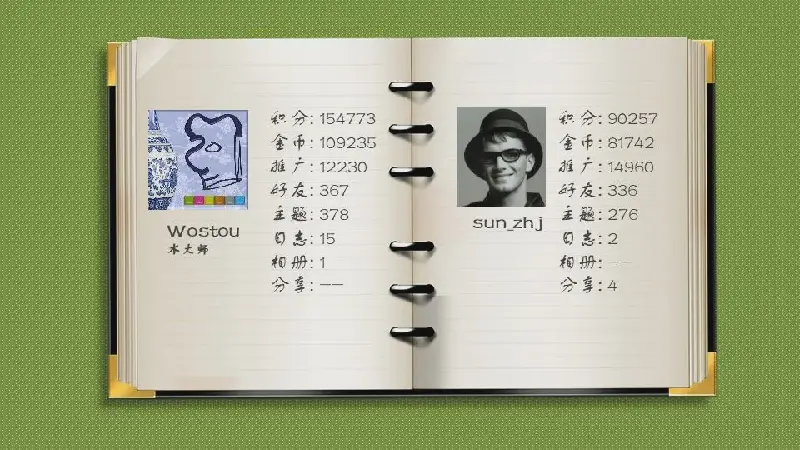 积分: 154773
金币: 109235
推广: 12230
好友: 367
主题: 378
日志: 15
相册: 1
分享: --
Wostou
本大师
积分: 90257
金币: 81742
推广: 14960
好友: 336
主题: 276
日志: 2
相册: --
分享: 4
sun_zhj